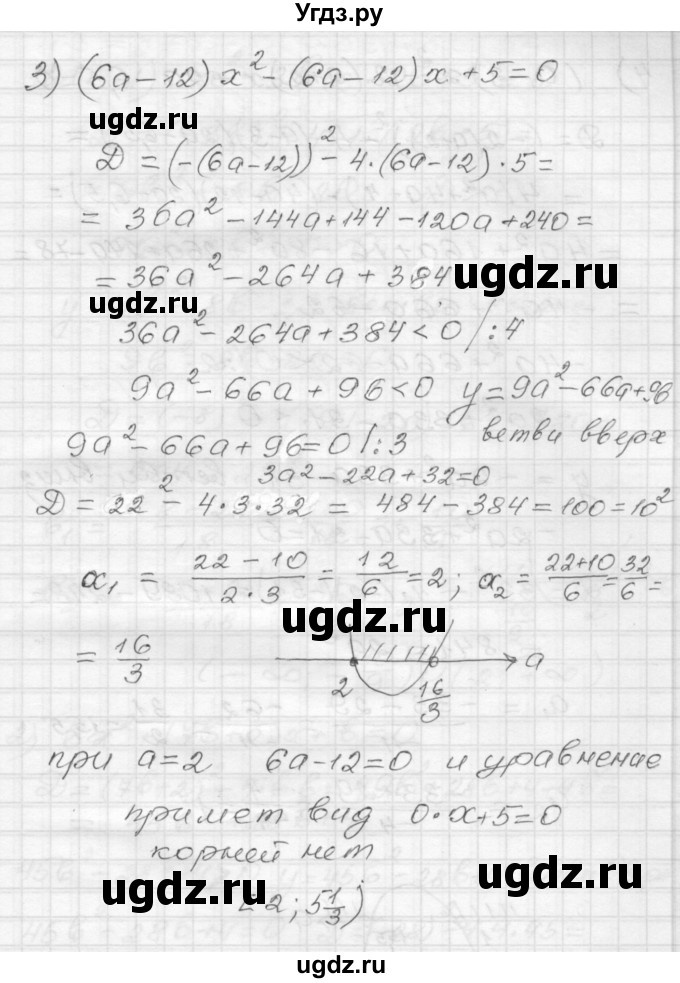 Угдз.ру
3) (6a-12)x²-(6a-12)x+5=0
ugdz.ru
Д=(-(6a-12))²-4·(6a-12)·5=
=36a²-144a+144-120a+240=
=36a²-264a+384
ugdz.ru
ugdz.ru
36a²-264a+384<0 /:4
9a²-66a+96<0 y=9a²-66a+96
9a²-66a+96=0 /:3 ветви вверх
3a²-22a+32=0
Д=22²-4·3·32=484-384=100=10²
x₁=(22-10)/(2·3)=12/6=2; x₂=(22+10)/6=32/6=
ugdz.ru
=16/3
2 16/3 a
при a=2 6a-12=0 и уравнение
примет вид 0·x+5=0
корней нет
ugdz.ru
ugdz.ru
2; 5 1/3)
ugdz.ru
ugdz.ru